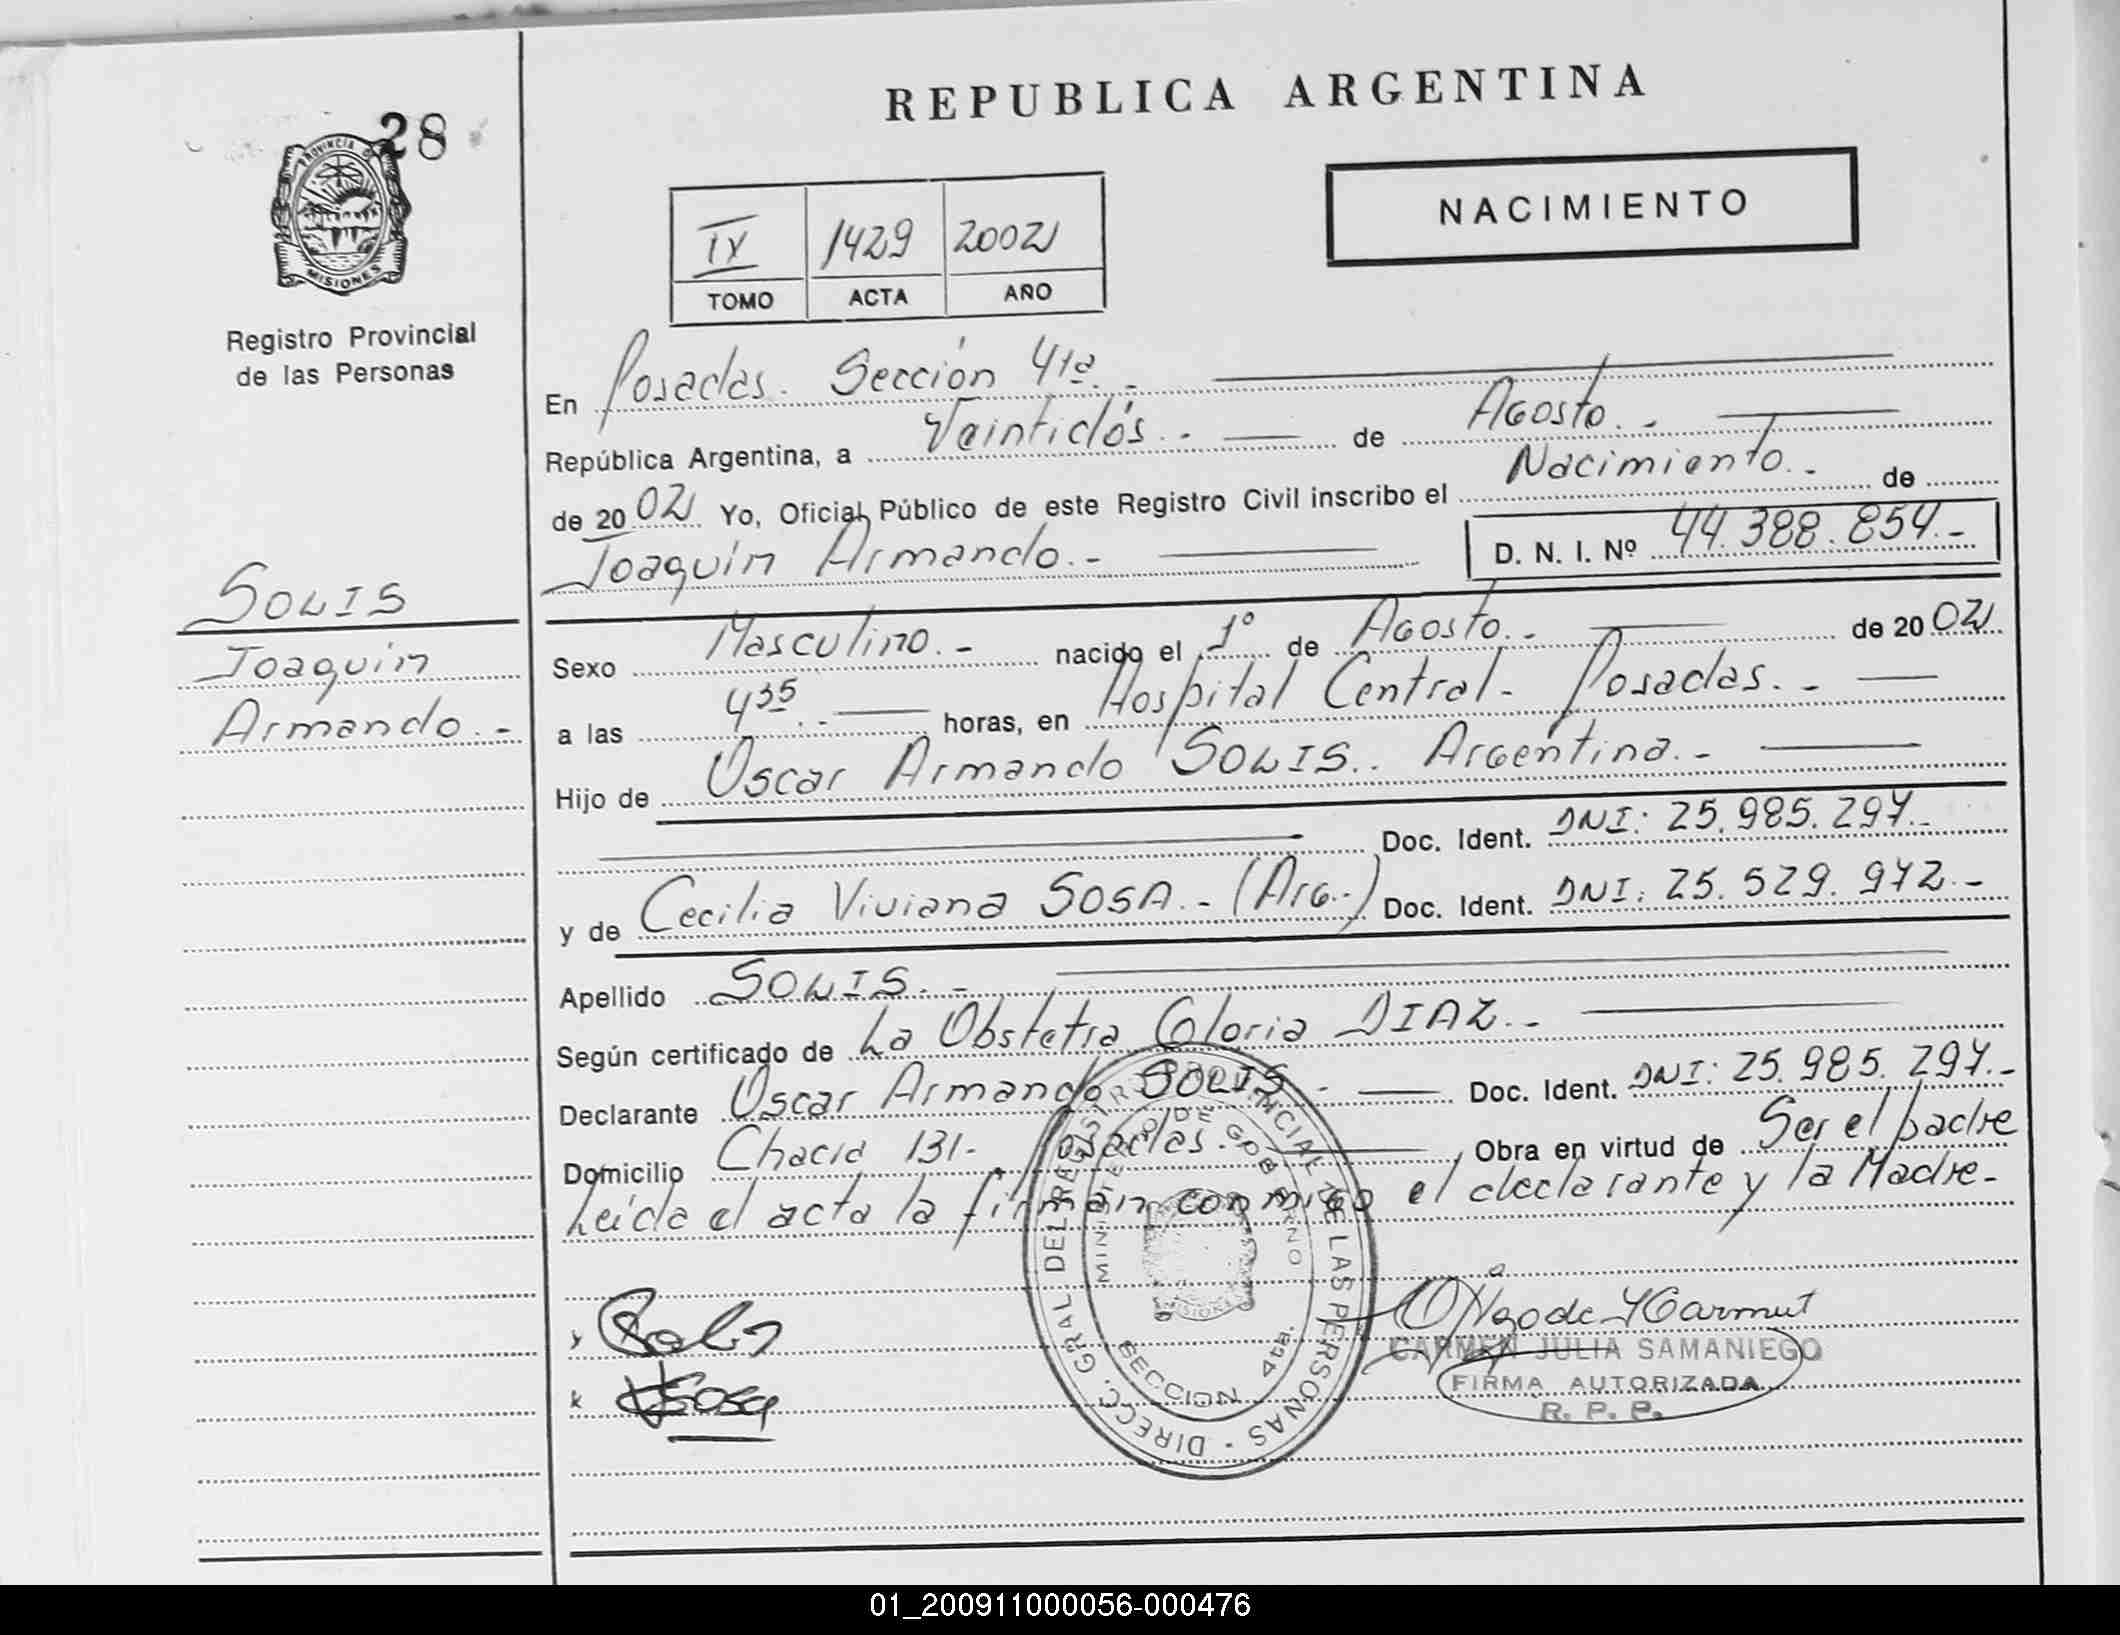 REPUBLICA ARGENTINA
28
PROVINCIA DE
MISIONES
Registro Provincial
de las Personas
IX 1429 2002
TOMO ACTA AÑO
NACIMIENTO
En Posadas. Sección 4ta.-
República Argentina, a Veintidós.- de Agosto.-
de 2002 Yo, Oficial Público de este Registro Civil inscribo el Nacimiento.- de
Joaquín Armando.- D. N. I. Nº 44.388.854.-
SOLIS
Joaquín
Armando.-
Sexo Masculino.- nacido el 1º de Agosto.- de 2002
a las 4 35.- horas, en Hospital Central- Posadas.-
Hijo de Oscar Armando SOLIS.. Argentina.-
Doc. Ident. DNI: 25.985.297.-
y de Cecilia Viviana SOSA.- (Arg.-) Doc. Ident. DNI: 25.529.972.-
Apellido SOLIS.-
Según certificado de La Obstetra Gloria DIAZ.-
Declarante Oscar Armando SOLIS.- Doc. Ident. DNI: 25.985.297.-
Domicilio Chacra 131- Posadas.- Obra en virtud de Ser el padre
Leída el acta la firman conmigo el declarante y la Madre-
DIRECC. GRAL DEL REGISTRO PROVINCIAL DE LAS PERSONAS -
MINISTERIO DE GOBIERNO
SECCION 4ta.
Sosa
CARMEN JULIA SAMANIEGO
FIRMA AUTORIZADA
R. P. P.
01_200911000056-000476